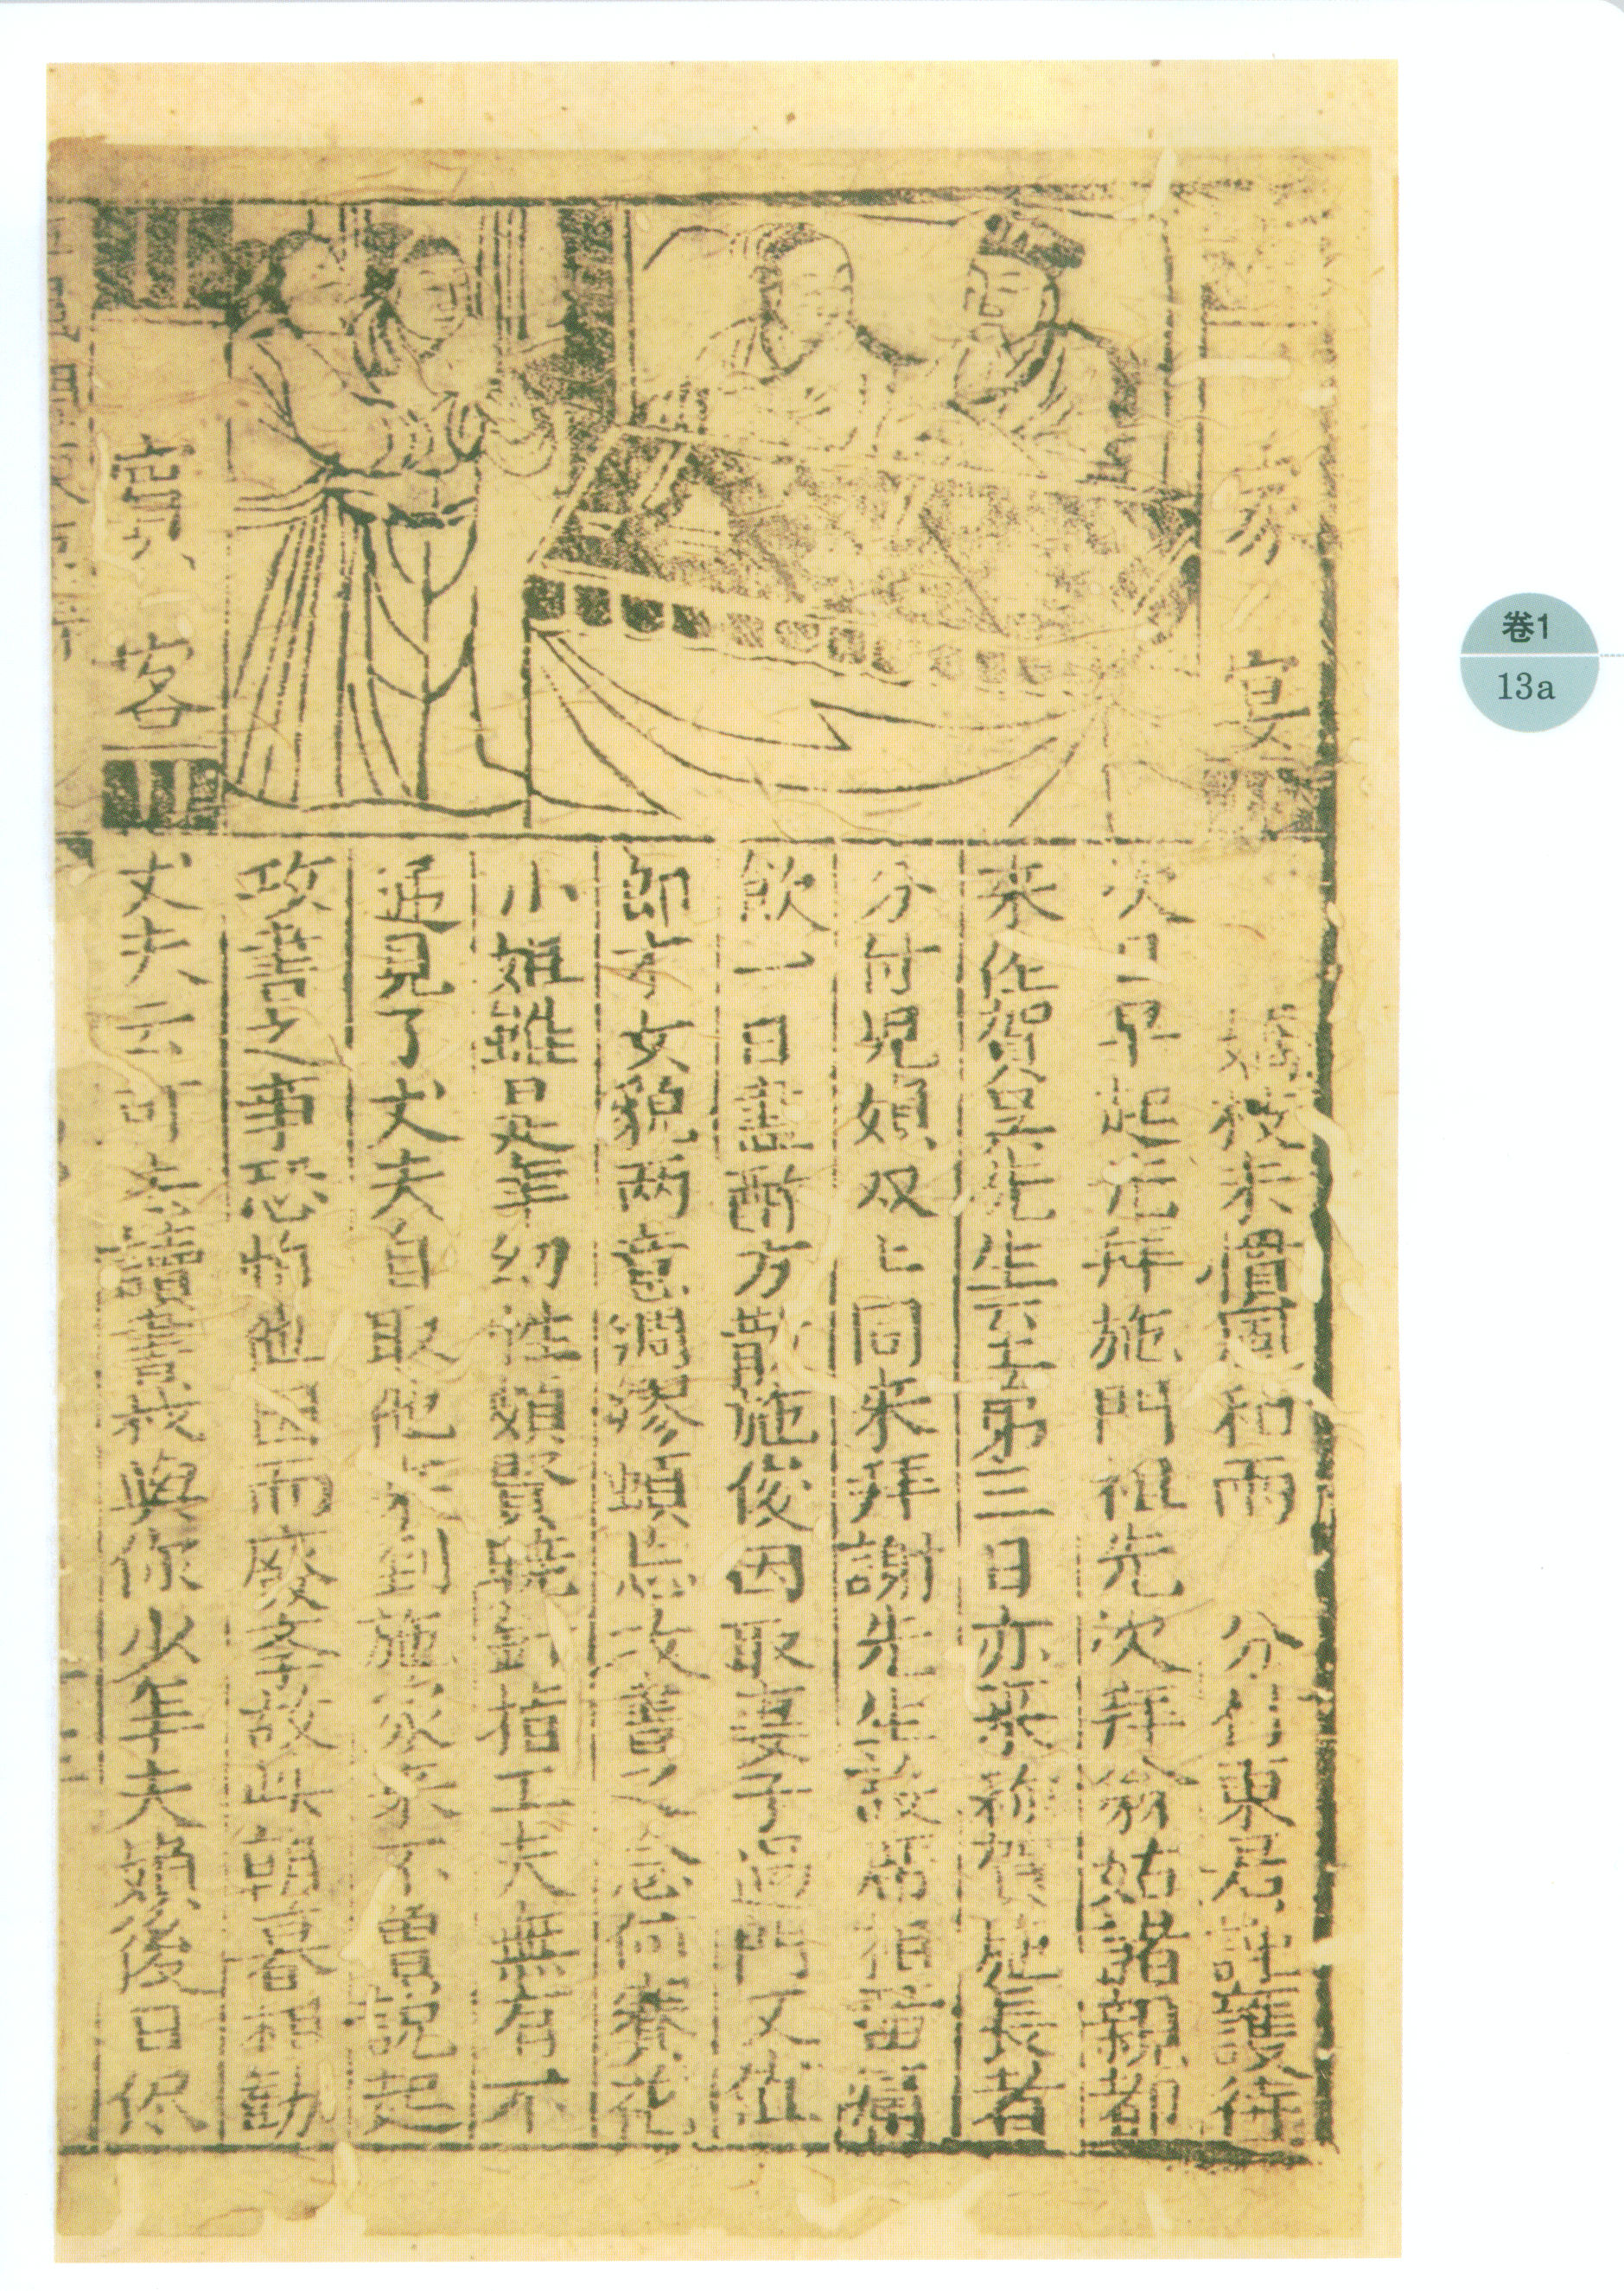 家宴
賓客
嬌枝未慣風和雨　分付東君好護持
次日早起先拜施門祖先次拜翁姑諸親都
来作賀吳先生六七弟三日亦来称賀施長者
分付児媳双〻同来拜謝先生設席相留痛
飲一日盡酔方散施俊因取妻子過門又值
郎才女貌兩意綢繆頓忘攻書之念何賽花
小姐雖是年幼性頗賢曉針指工夫無有不
通見了丈夫自取他来到施家来不曾説起
攻書之事恐怕他因而廢矣故此朝暮相勸
丈夫云可去讀書枝與你少年夫婦後日侭
卷1
13a